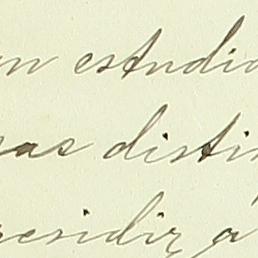 n estudia
as distin
residir á